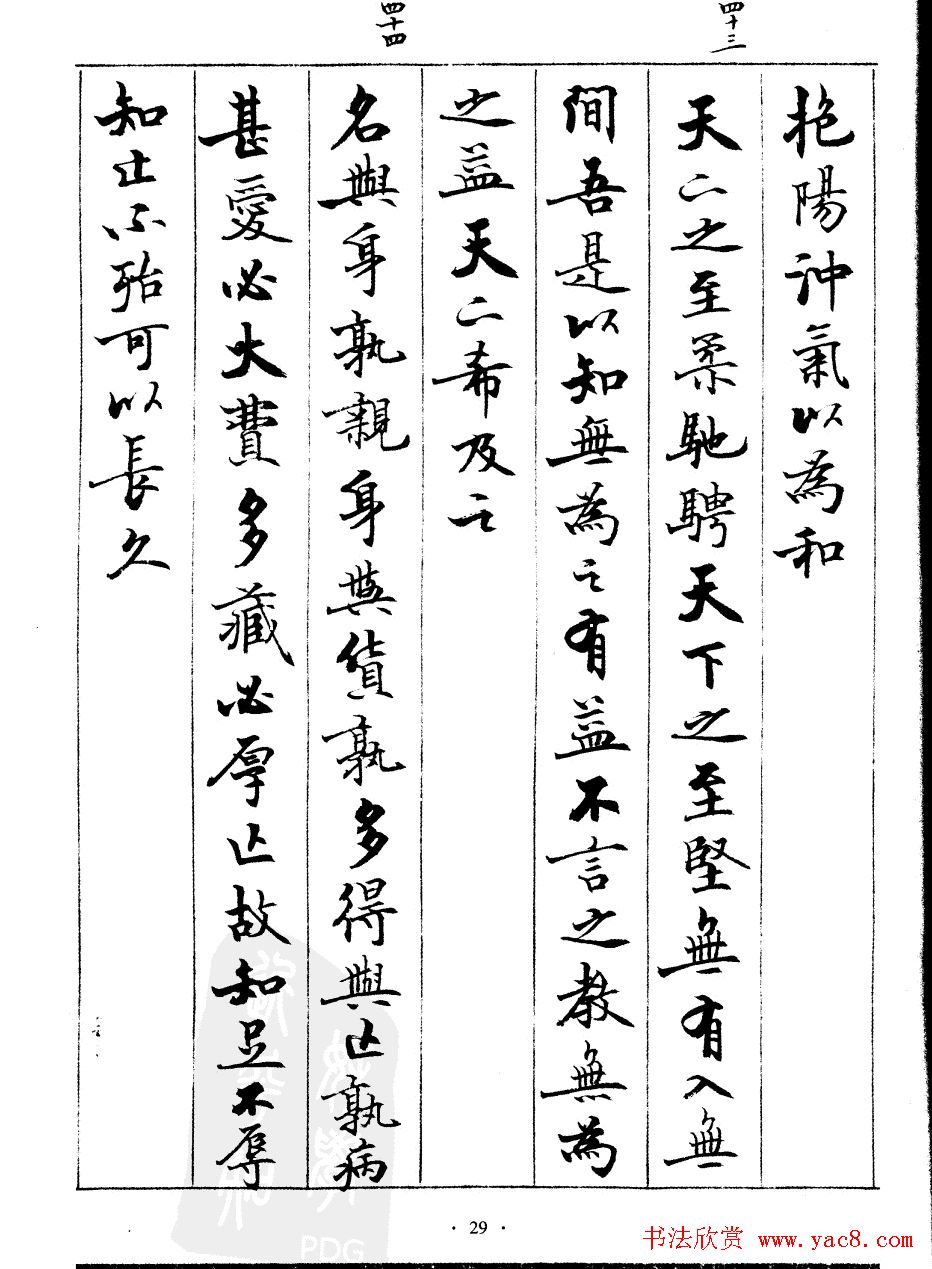 四十三
四十四
抱陽沖氣以為和
天下之至柔馳騁天下之至堅無有入無
間吾是以知無為之有益不言之教無為
之益天下希及之
名與身孰親身與貨孰多得與亡孰病
甚愛必大費多藏必厚亡故知足不辱
知止不殆可以長久
· 29 ·
书法欣赏 www.yac8.com
PDG